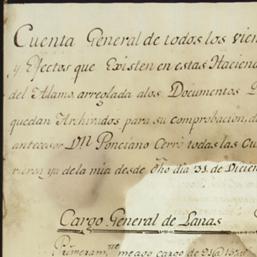 Cuenta General de todos los vien
y Efectos que Existen en estas Hacien
del Alamo, arreglada alos Documentos
quedan Archivados para su comprobacion, d
antecesor Dn Ponciano Cerró todas las Cu
ya de la mia desde dho dia 31 de Dicien
Cargo General de Lanas
Primeramte me ago cargo de